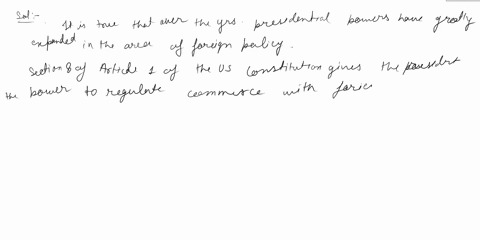 Sol:- . It is true that over the yrs. presidential powers have greatly
expanded in the area of foreign policy.
Section 8 of Article 1 of the US constitution gives the
the power to regulate commerce with